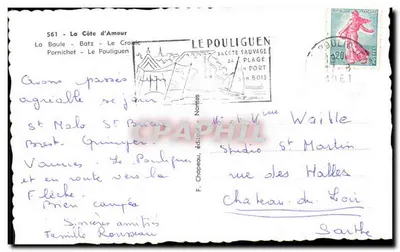 561 - La Côte d'Amour
La Baule - Batz - Le Croisic
Pornichet - Le Pouliguen
LE POULIGUEN
SA CÔTE SAUVAGE
SA PLAGE
PORT
BOIS
Avons passés un
agréable se jour
St Malo St Brieuc
Brest. Quimper.
Vannes. Le Pouliguen
et en route vers la
Flèche.
Bien campée
Sincères amitiés
Famille Rousseau
F. Chapeau, éd., Nantes
CPAPHIL
Mr et Vve Waille
Studio St Martin
rue des Halles
Chateau du Loir
Sarthe